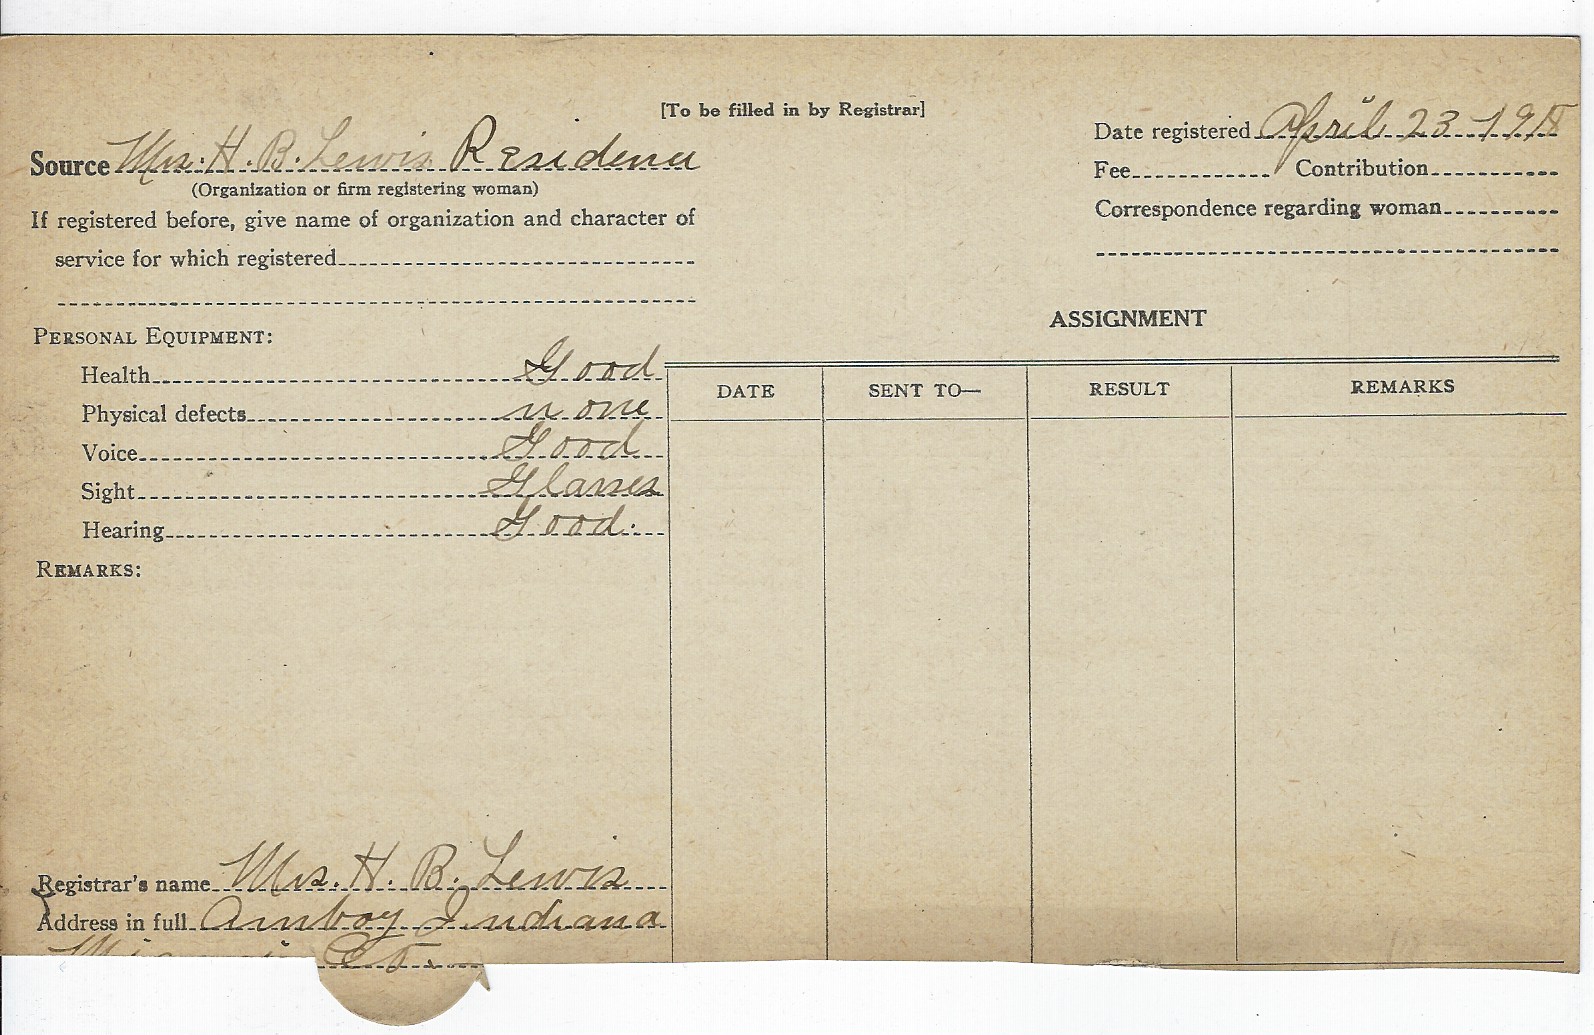 [To be filled in by Registrar]
Date registered April 23-1918
Source Mrs. H. B. Lewis Residence
Fee Contribution
(Organization or firm registering woman)
Correspondence regarding woman
If registered before, give name of organization and character of
service for which registered
ASSIGNMENT
PERSONAL EQUIPMENT:
Health Good
Physical defects none
Voice Good
Sight Glasses
Hearing Good.
REMARKS:
DATE SENT TO— RESULT REMARKS
Registrar's name Mrs. H. B. Lewis
Address in full Amboy Indiana
Miami Co.